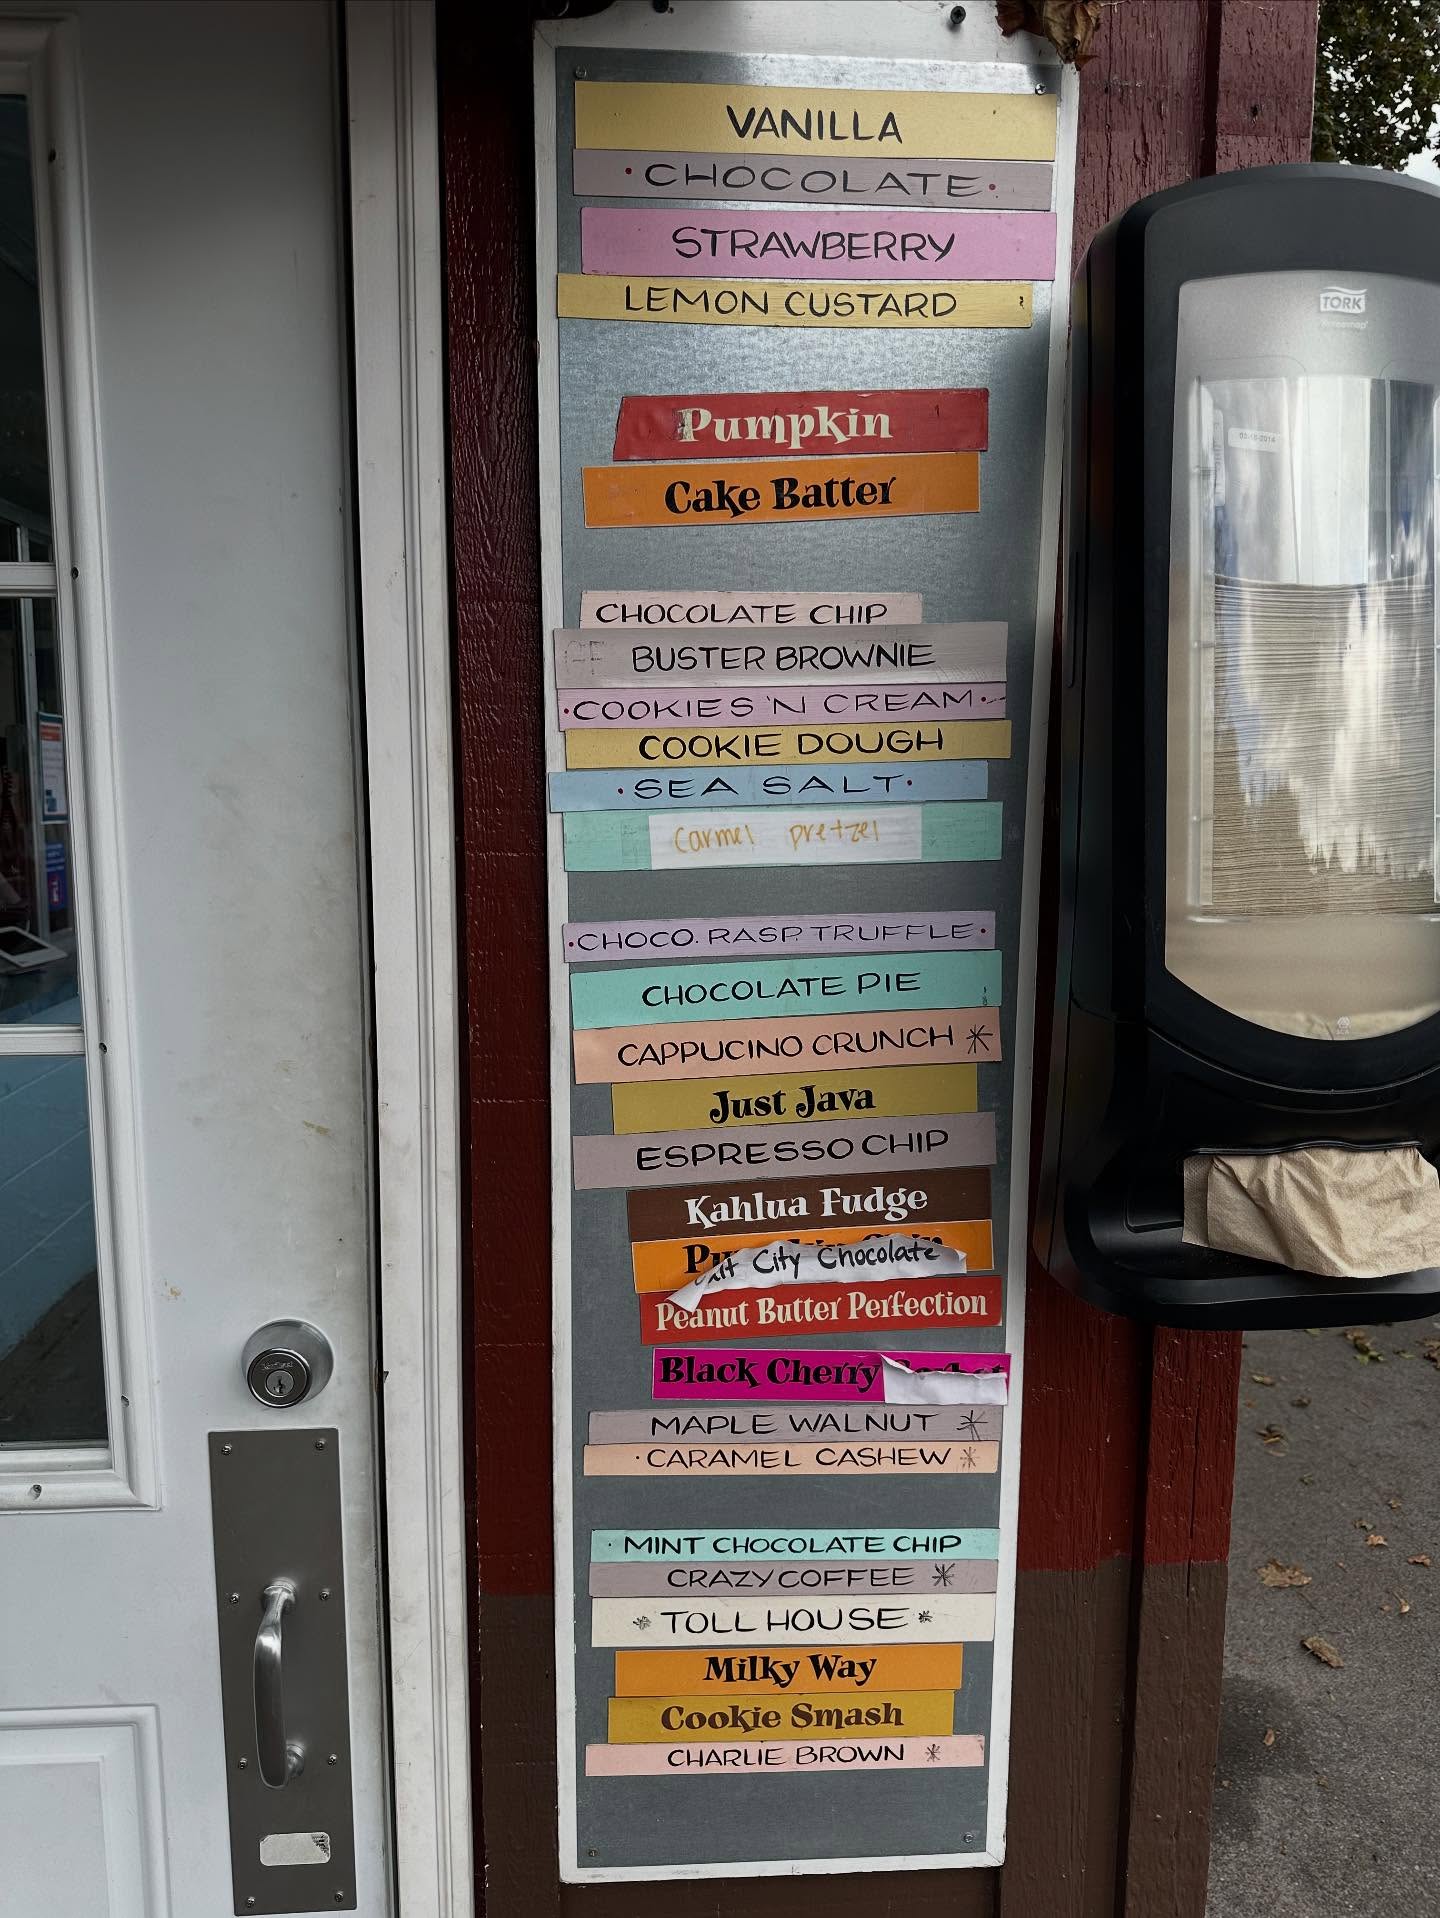 VANILLA
• CHOCOLATE •
STRAWBERRY
LEMON CUSTARD
Pumpkin
Cake Batter
CHOCOLATE CHIP
BUSTER BROWNIE
• COOKIES 'N CREAM •
COOKIE DOUGH
• SEA SALT •
Carmel pretzel
• CHOCO. RASP. TRUFFLE •
CHOCOLATE PIE
CAPPUCINO CRUNCH *
Just Java
ESPRESSO CHIP
Kahlua Fudge
City Chocolate
Peanut Butter Perfection
Black Cherry
MAPLE WALNUT *
• CARAMEL CASHEW *
• MINT CHOCOLATE CHIP
CRAZY COFFEE *
* TOLL HOUSE *
Milky Way
Cookie Smash
CHARLIE BROWN *
TORK